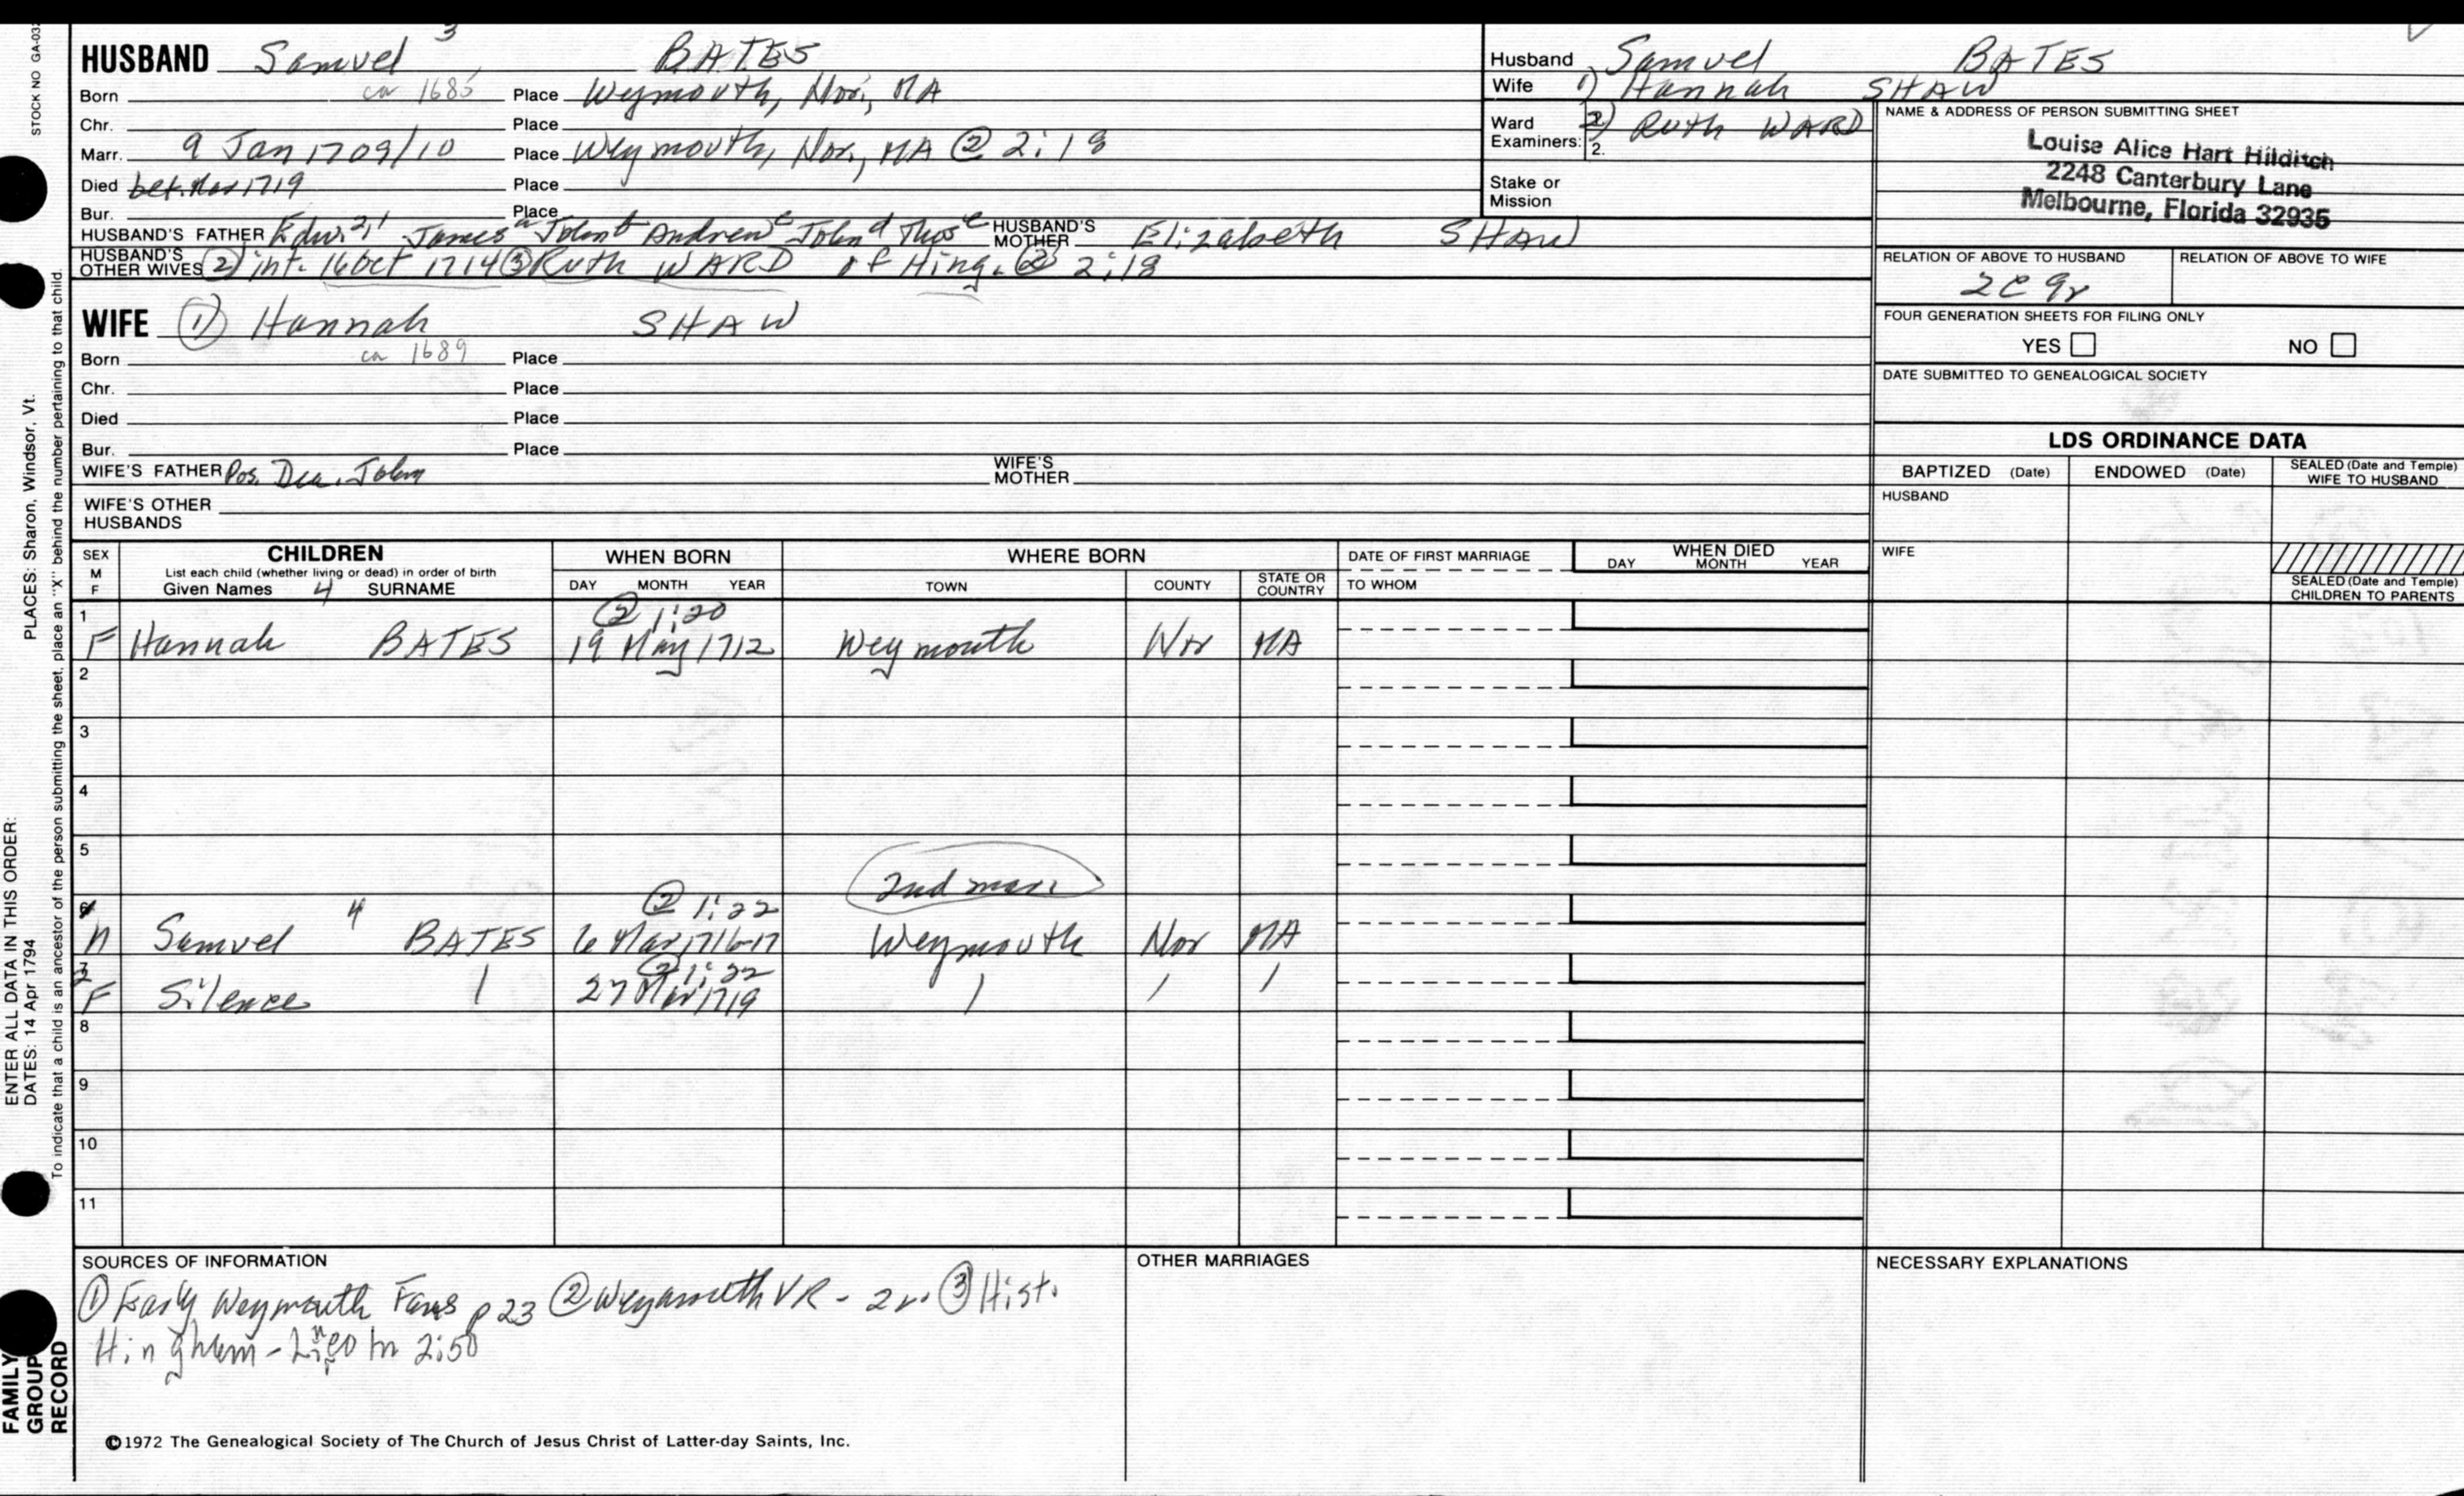 STOCK NO GA-032
HUSBAND Samuel 3 BATES
Born ca 1685 Place Weymouth, Nor., MA
Chr. Place
Marr. 9 Jan 1709/10 Place Weymouth, Nor., MA @ 2:18
Died bef. Mar 1719 Place
Bur. Place
HUSBAND'S FATHER Edw. 2, 1 James a John b Andrew c John d Thos e HUSBAND'S MOTHER Elizabeth SHAW
HUSBAND'S OTHER WIVES (2) int. 16 Oct 1714 ③ Ruth WARD of Hing. ② 2:18
WIFE (1) Hannah SHAW
Born ca 1689 Place
Chr. Place
Died Place
Bur. Place
WIFE'S FATHER Pos. Dea. John WIFE'S MOTHER
WIFE'S OTHER HUSBANDS
Husband Samuel BATES
Wife 1) Hannah SHAW
Ward Examiners: 2) Ruth WARD
2.
Stake or Mission
NAME & ADDRESS OF PERSON SUBMITTING SHEET
Louise Alice Hart Hilditch
2248 Canterbury Lane
Melbourne, Florida 32935
RELATION OF ABOVE TO HUSBAND RELATION OF ABOVE TO WIFE
2C 9r
FOUR GENERATION SHEETS FOR FILING ONLY
YES NO
DATE SUBMITTED TO GENEALOGICAL SOCIETY
LDS ORDINANCE DATA
BAPTIZED (Date) ENDOWED (Date) SEALED (Date and Temple) WIFE TO HUSBAND
HUSBAND
WIFE
SEALED (Date and Temple) CHILDREN TO PARENTS
SEX M F CHILDREN WHEN BORN WHERE BORN DATE OF FIRST MARRIAGE WHEN DIED
List each child (whether living or dead) in order of birth
Given Names 4 SURNAME DAY MONTH YEAR TOWN COUNTY STATE OR COUNTRY TO WHOM DAY MONTH YEAR
1 ② 1:20
F Hannah BATES 19 May 1712 Weymouth Nor MA
2
3
4
5
2nd marr
6 ② 1:22
M Samuel 4 BATES 6 Mar 1716-17 Weymouth Nor MA
7 ② 1:22
F Silence 27 Mar 1719
8
9
10
11
SOURCES OF INFORMATION
① Early Weymouth Fams p 23 ② Weymouth VR - 2v. ③ Hist.
Hingham - 2:50
OTHER MARRIAGES
NECESSARY EXPLANATIONS
©1972 The Genealogical Society of The Church of Jesus Christ of Latter-day Saints, Inc.
ENTER ALL DATA IN THIS ORDER:
DATES: 14 Apr 1794 PLACES: Sharon, Windsor, Vt.
To indicate that a child is an ancestor of the person submitting the sheet, place an "X" behind the number pertaining to that child.
FAMILY GROUP RECORD